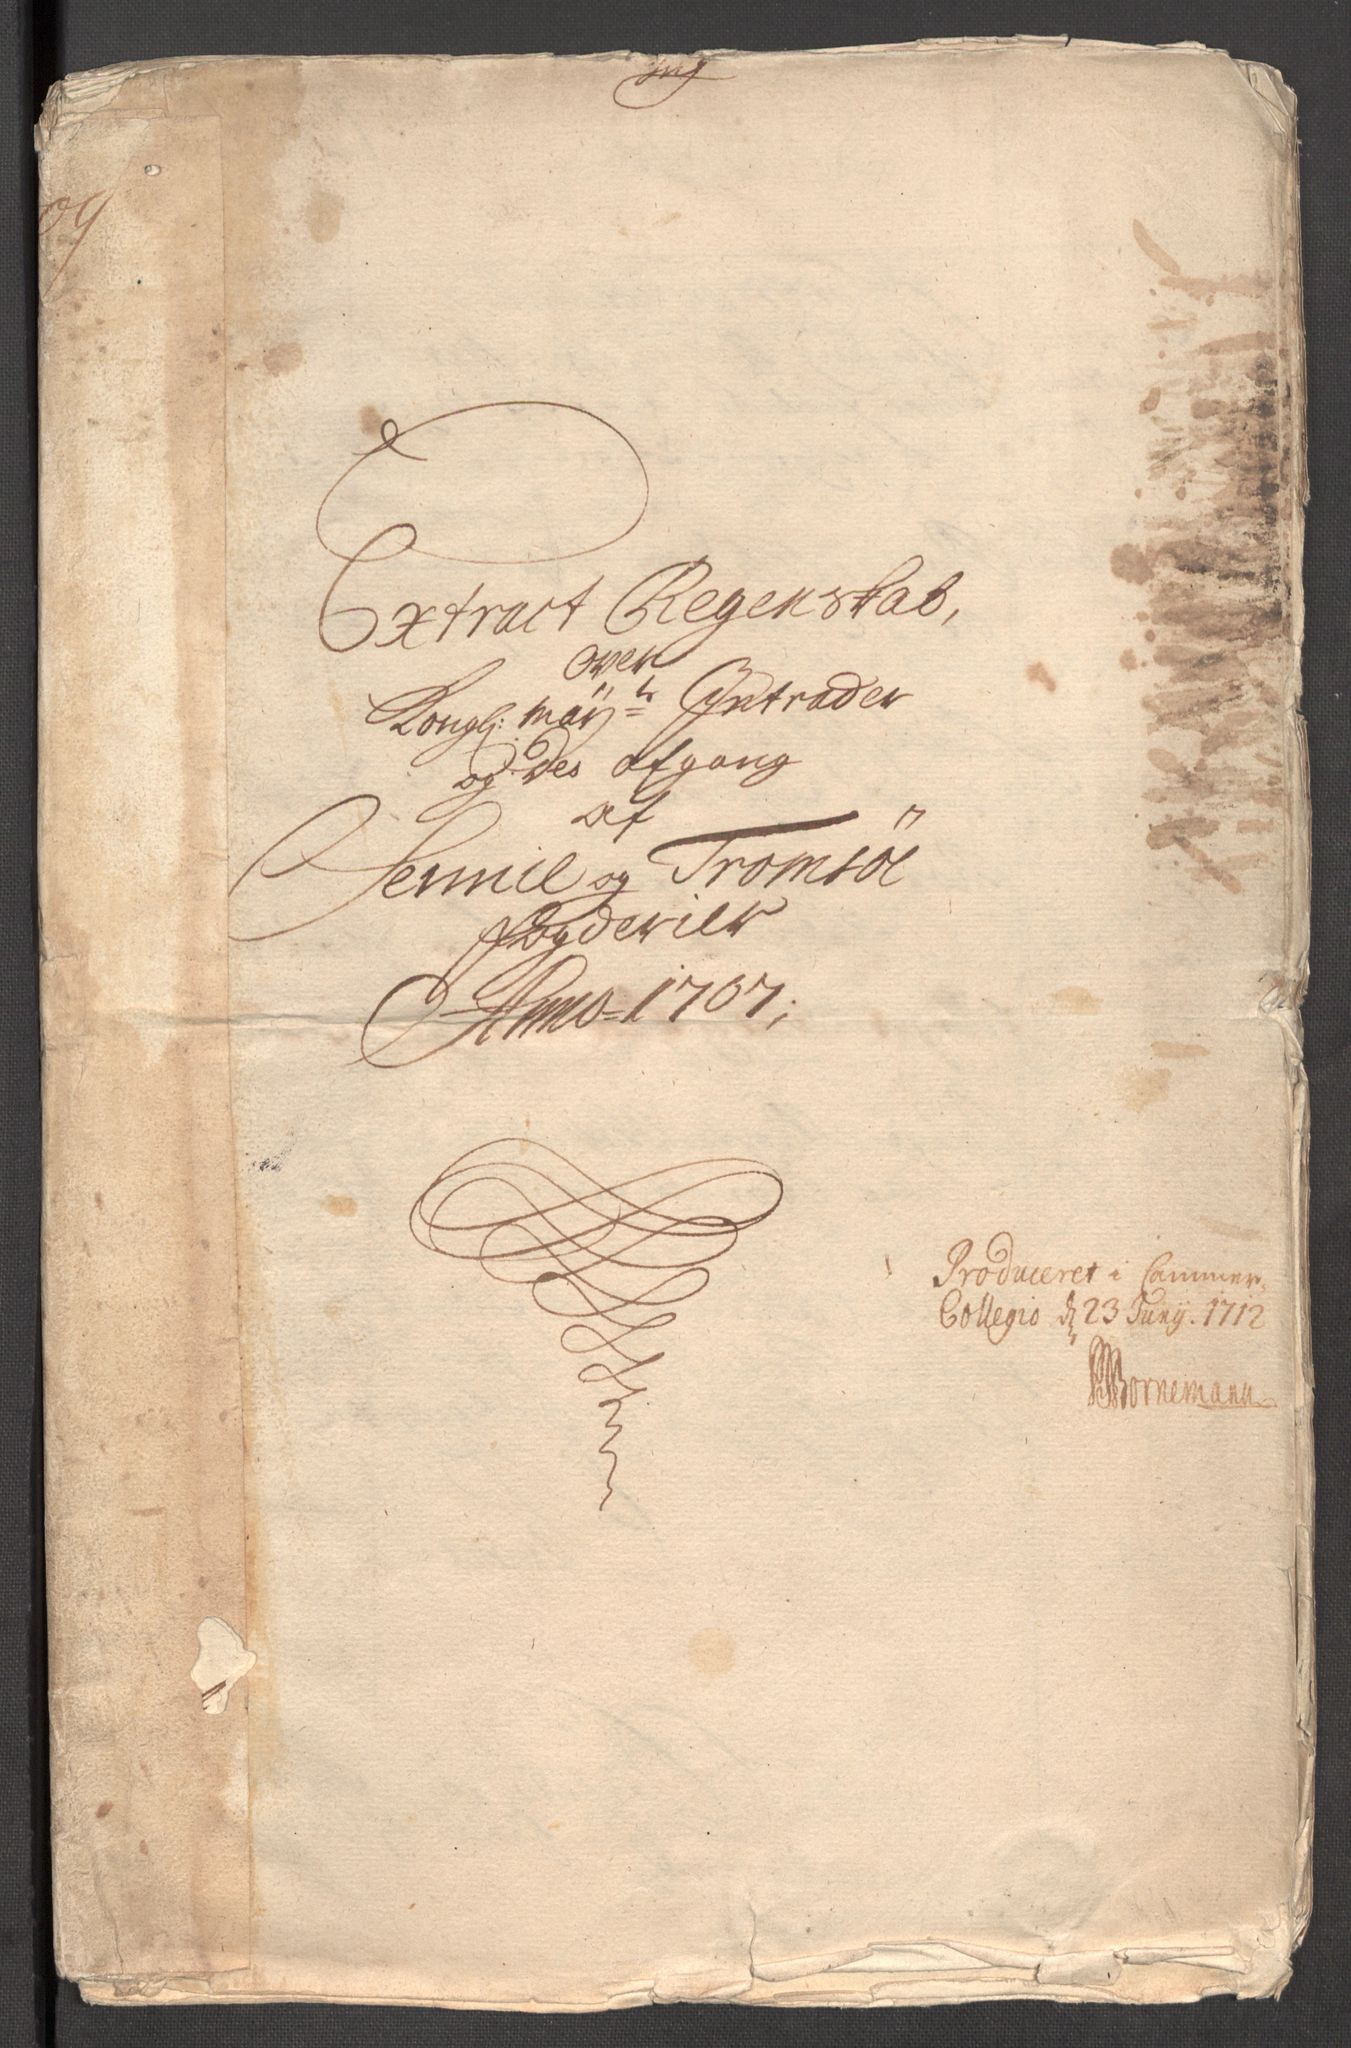 09
Extract Regenskab,
over
Kongl: Mäy:ts Yntrader
og des afgang
af
Sennie og Tromsöe
fogderier
Anno = 1707;
Produceret i Cammer-
Collegio d 23 Junij. 1712
Bornemann